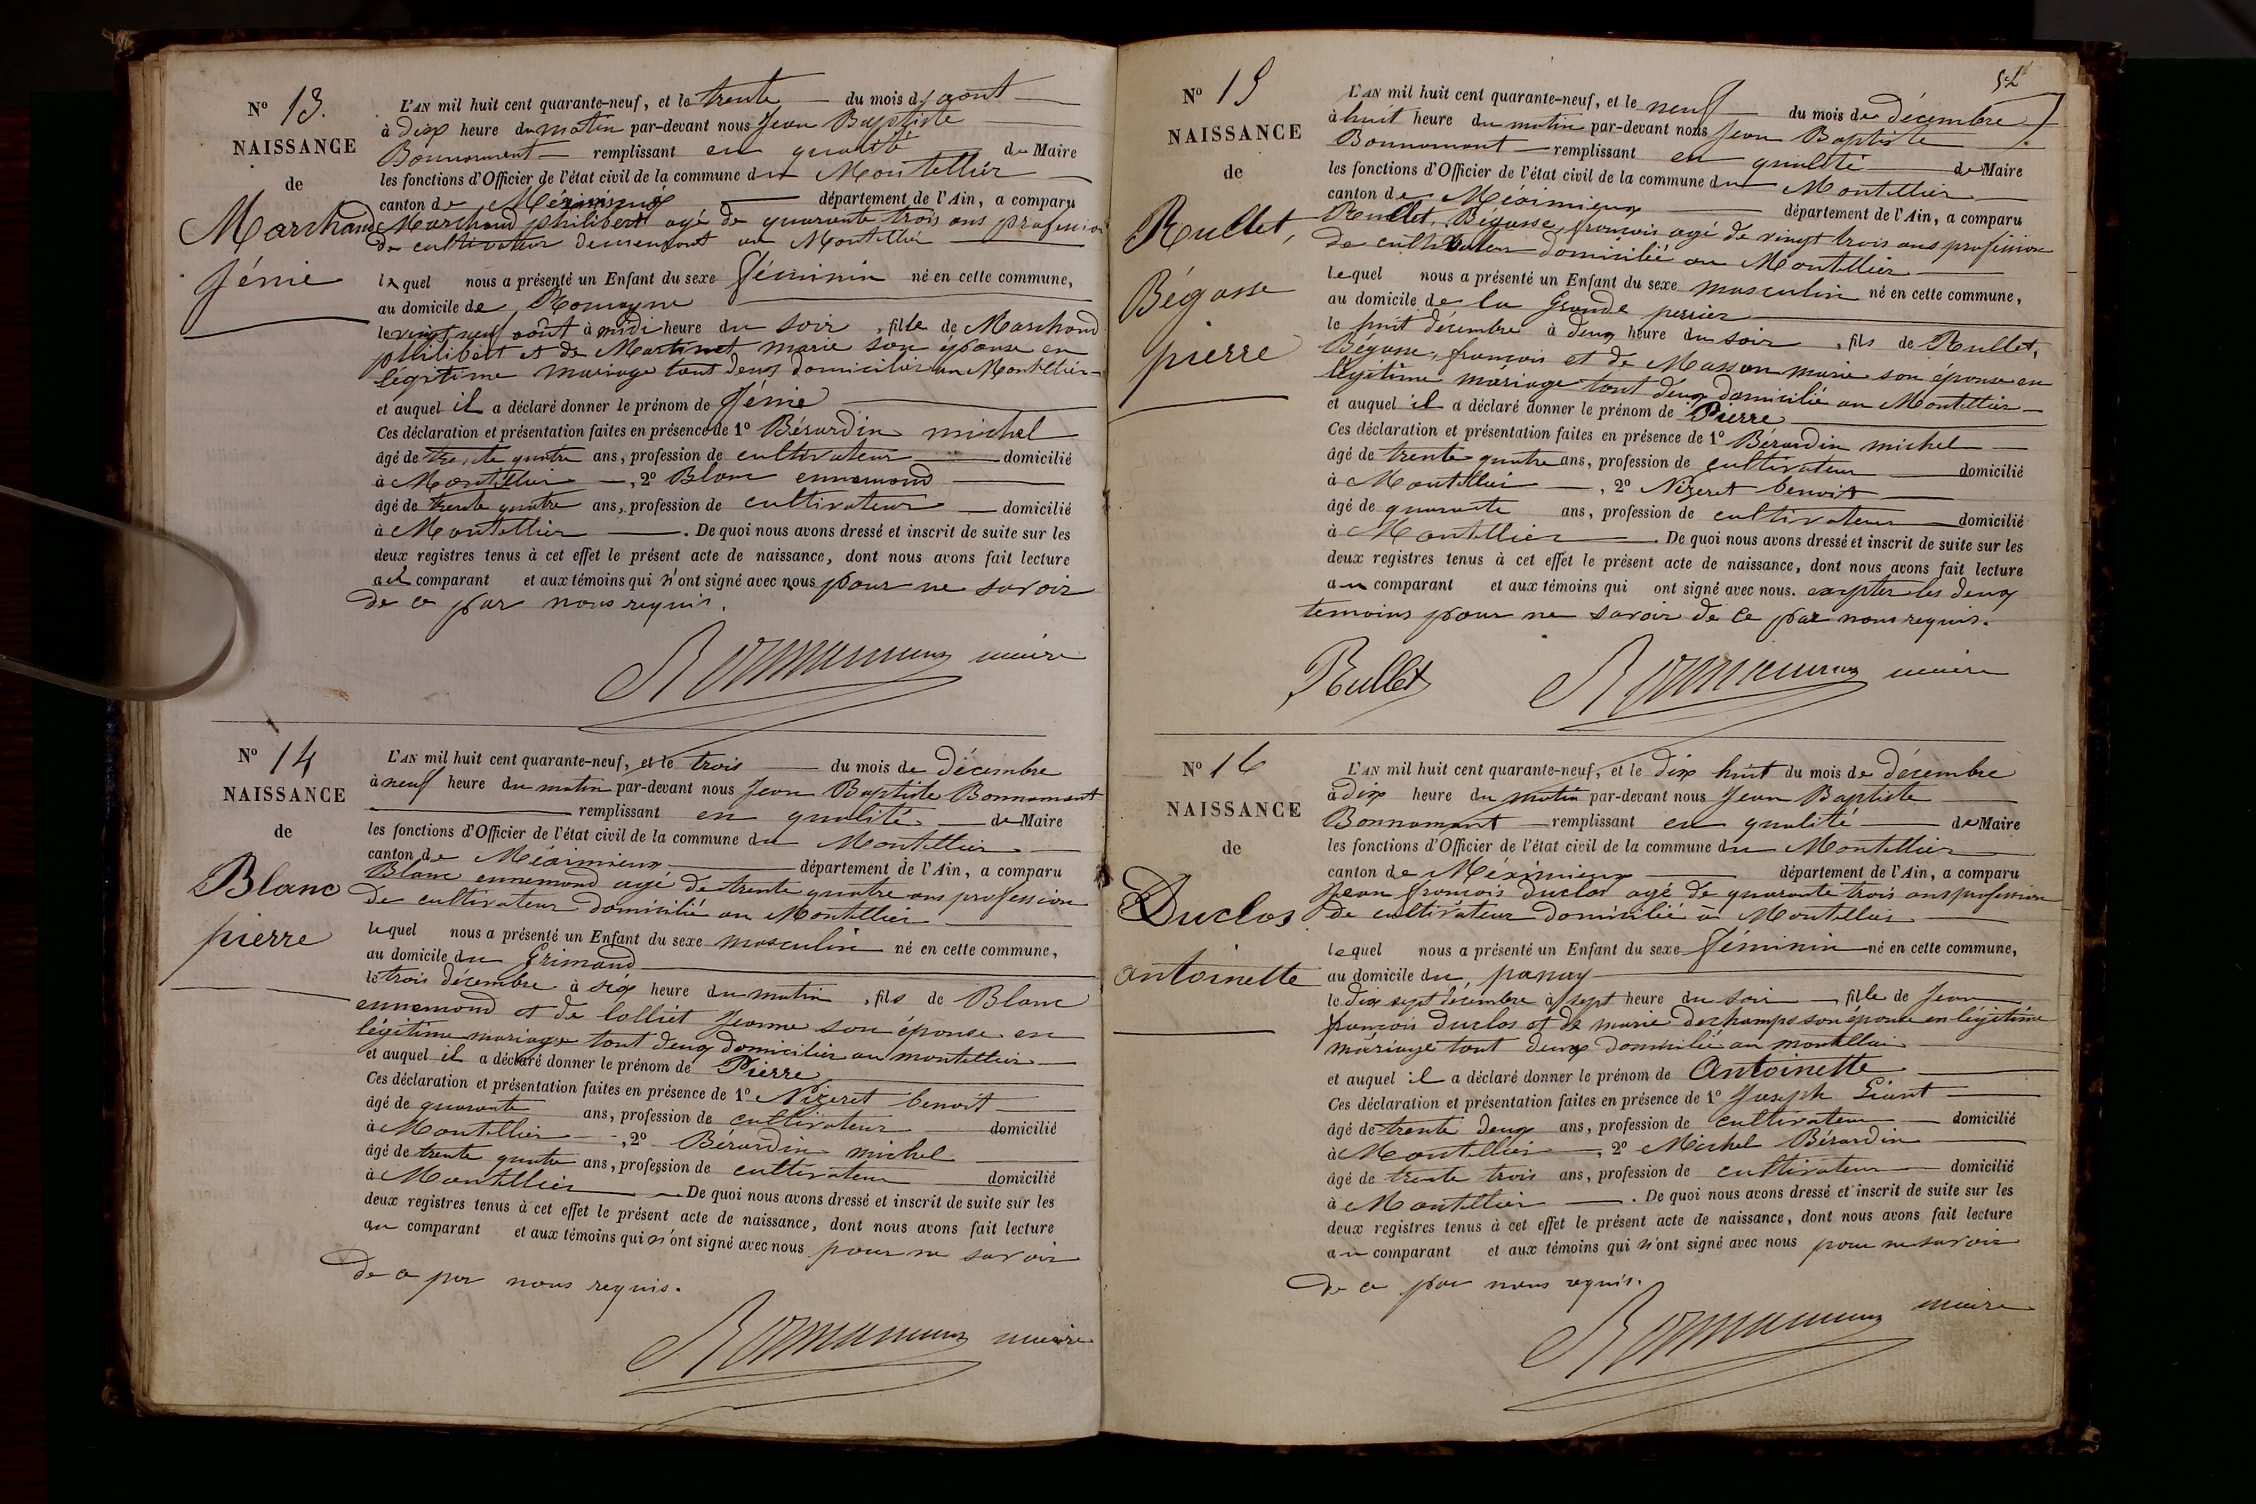 N° 13.
NAISSANCE
de
Marchand
Jénie
L'AN mil huit cent quarante-neuf, et le trente du mois d'août
à dix heure du matin par-devant nous Jean Baptiste
Bonnamant remplissant en qualité de Maire
les fonctions d'Officier de l'état civil de la commune du Montellier
canton de Méximieux département de l'Ain, a comparu
Marchand philibert agé de quarante trois ans profession
de cultivateur demeurant au Montellier
lequel nous a présenté un Enfant du sexe féminin né en cette commune,
au domicile de Romagne
le vingt neuf août à midi heure du soir, fille de Marchand
philibert et de Martinet marie son épouse en
légitime mariage tout deux domiciliés au Montellier
et auquel il a déclaré donner le prénom de Jénie
Ces déclaration et présentation faites en présence de 1° Bérardin michel
âgé de trente quatre ans, profession de cultivateur domicilié
à Montellier, 2° Blanc ennemond
âgé de trente quatre ans, profession de cultivateur domicilié
à Montellier. De quoi nous avons dressé et inscrit de suite sur les
deux registres tenus à cet effet le présent acte de naissance, dont nous avons fait lecture
au comparant et aux témoins qui n'ont signé avec nous pour ne savoir
de ce par nous requis.
Bonnamant maire
N° 14
NAISSANCE
de
Blanc
pierre
L'AN mil huit cent quarante-neuf, et le trois du mois de décembre
à neuf heure du matin par-devant nous Jean Baptiste Bonnamant
remplissant en qualité de Maire
les fonctions d'Officier de l'état civil de la commune du Montellier
canton de Méximieux département de l'Ain, a comparu
Blanc ennemond agé de trente quatre ans profession
de cultivateur domicilié au Montellier
lequel nous a présenté un Enfant du sexe masculin né en cette commune,
au domicile du Grimand
le trois décembre à six heure du matin, fils de Blanc
ennemond et de lolliet Jeanne son épouse en
légitime mariage tout deux domiciliés au montellier
et auquel il a déclaré donner le prénom de Pierre
Ces déclaration et présentation faites en présence de 1° Nizeret benoit
âgé de quarante ans, profession de cultivateur domicilié
à Montellier, 2° Bérardin michel
âgé de trente quatre ans, profession de cultivateur domicilié
à Montellier De quoi nous avons dressé et inscrit de suite sur les
deux registres tenus à cet effet le présent acte de naissance, dont nous avons fait lecture
au comparant et aux témoins qui n'ont signé avec nous pour ne savoir
de ce par nous requis.
Bonnamant maire
52
N° 15
NAISSANCE
de
Rullet,
Bégasse
pierre
L'AN mil huit cent quarante-neuf, et le neuf du mois de décembre
à huit heure du matin par-devant nous Jean Baptiste
Bonnamant remplissant en qualité de Maire
les fonctions d'Officier de l'état civil de la commune du Montellier
canton de Méximieux département de l'Ain, a comparu
Rullet, Bégasse, françois agé de vingt trois ans profission
de cultivateur domicilié au Montellier
lequel nous a présenté un Enfant du sexe masculin né en cette commune,
au domicile de la Grande perrier
le huit décembre à deux heure du soir, fils de Rullet,
Bégasse, françois et de Masson marie son épouse en
légitime mariage tout deux domicilié au Montellier
et auquel il a déclaré donner le prénom de Pierre
Ces déclaration et présentation faites en présence de 1° Bérardin michel
âgé de trente quatre ans, profession de cultivateur domicilié
à Montellier, 2° Nizeret benoit
âgé de quarante ans, profession de cultivateur domicilié
à Montellier. De quoi nous avons dressé et inscrit de suite sur les
deux registres tenus à cet effet le présent acte de naissance, dont nous avons fait lecture
au comparant et aux témoins qui ont signé avec nous. exepter les deux
temoins pour ne savoir de ce par nous requis.
Rullet Bonnamant maire
N° 16
NAISSANCE
de
Duclos
antoinette
L'AN mil huit cent quarante-neuf, et le dix huit du mois de décembre
à dix heure du matin par-devant nous Jean Baptiste
Bonnamant remplissant en qualité de Maire
les fonctions d'Officier de l'état civil de la commune du Montellier
canton de Méximieux département de l'Ain, a comparu
Jean françois duclos agé de quarante trois ans profession
de cultivateur domicilié à Montellier
lequel nous a présenté un Enfant du sexe féminin né en cette commune,
au domicile du panay
le dix sept décembre à sept heure du soir, fille de Jean
françois duclos et de marie deschamps son épouse en légitime
mariage tout deux domicilié au montellier
et auquel il a déclaré donner le prénom de Antoinette
Ces déclaration et présentation faites en présence de 1° Joseph Géant
âgé de trente deux ans, profession de cultivateur domicilié
à Montellier, 2° Michel Bérardin
âgé de trente trois ans, profession de cultivateur domicilié
à Montellier. De quoi nous avons dressé et inscrit de suite sur les
deux registres tenus à cet effet le présent acte de naissance, dont nous avons fait lecture
au comparant et aux témoins qui n'ont signé avec nous pour ne savoir
de ce par nous requis.
Bonnamant maire